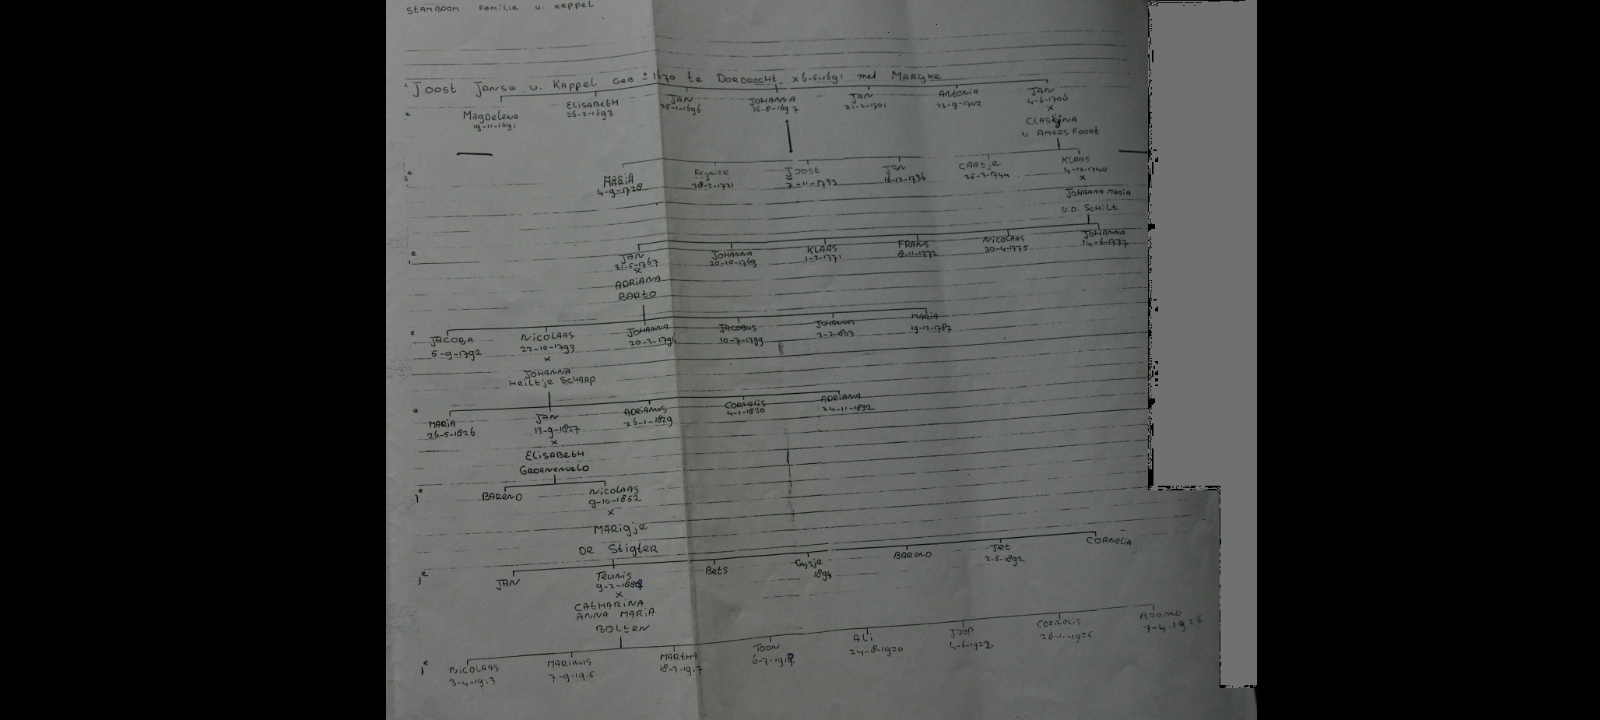 STAMBOOM FAMILIE v. KAPPEL
Joost Janse v. Kappel GEB ± 1670 te DORDRECHT x 6-5-1691 met MARYKE
Magdelena ELISABETH JAN JOHANNA JAN ANTONIA JAN
19-11-1691 26-2-1693 25-1-1696 26-5-1697 21-2-1701 22-9-1702 4-6-1706
x
CLASIJNA
v AMERSFOORT
MARIA Reynier JOOST JAN CAASJE KLAAS
4-9-1728 28-2-1731 7-11-1733 16-12-1736 25-3-1744 4-12-1740
x
JOHANNA MARIA
v.D. SCHILT
JAN JOHANNA KLAAS FRANS NICOLAAS JOHANNA
31-5-1767 20-10-1769 1-2-1771 8-11-1772 30-4-1775 14-6-1777
x
ADRIANA
BARTO
JACOBA NICOLAAS JOHANNA JACOBUS JOHANNIS MARIA
5-9-1792 22-10-1793 10-7-1799 2-2-1803 19-12-1787
x
JOHANNA
Heiltje SCHAAP
MARIA JAN ADRIANUS CORNELIS ADRIANA
26-5-1826 13-9-1827 26-1-1829 4-1-1830 24-11-1832
x
ELISABETH
GROENEVELD
BAREND NICOLAAS
9-10-1852
x
MARIGJE
DE STIGTER
JAN Teunis Bets Gysje BAREND Jet CORNELIA
1894 2-5-1892
x
CATHARINA
ANNA MARIA
BOLTEN
NICOLAAS MARINUS MARTHA TOON ALI JOOP CORNELIS
3-4-1913 7-9-1915 18-3-1917 24-8-1920 4-6-1922 26-1-1925 7-4-1926